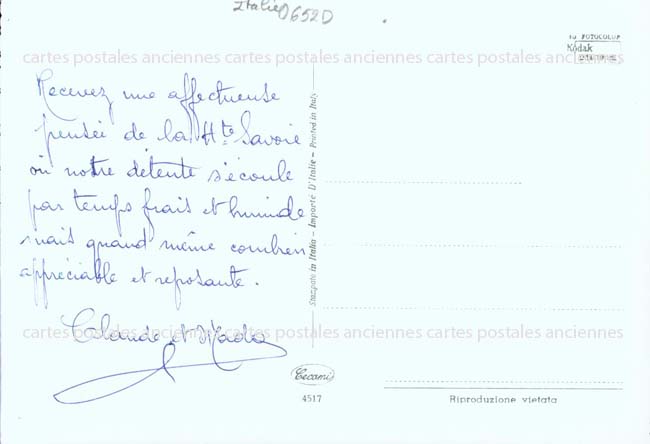 Italie 0652D
FOTOCOLOR
Kodak
EKTACHROME
cartes postales anciennes cartes postales anciennes cartes postales anciennes
Recevez une affectueuse
pensée de la Hte Savoie
où notre détente s'écoule
par temps frais et humide
mais quand même combien
appréciable et reposante.
Claude et Mado
cartes postales anciennes cartes postales anciennes cartes postales anciennes
Stampato in Italia - Importé D'Italie - Printed in Italy
Cecami
4517
Riproduzione vietata